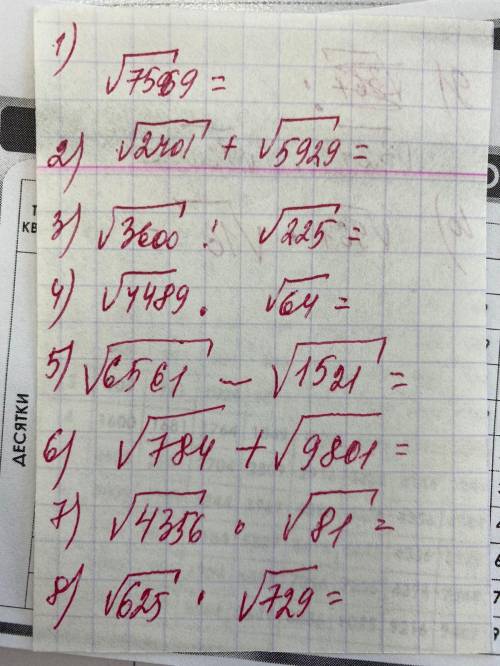 1)
√7569 =
2) √2401 + √5929 =
3) √3600 : √225 =
4) √4489 · √64 =
5) √6561 – √1521 =
6) √784 + √9801 =
7) √4356 · √81 =
8) √625 · √729 =
ДЕСЯТКИ